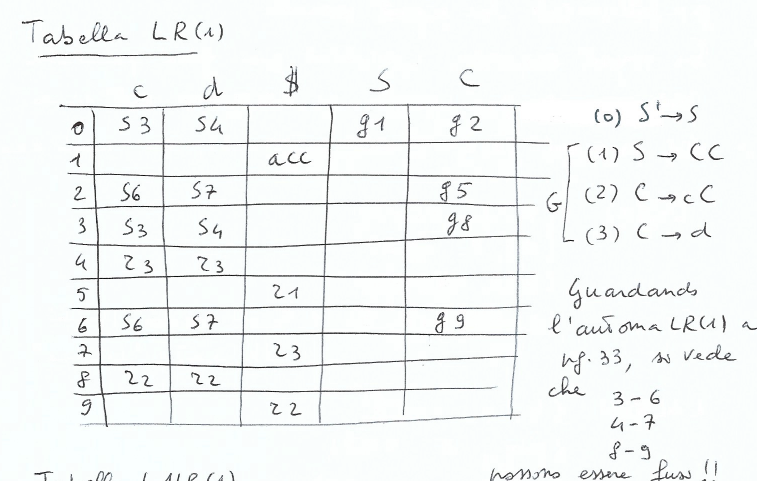 Tabella LR(1)
c d $ S C
0 s3 s4 g1 g2
1 acc
2 s6 s7 g5
3 s3 s4 g8
4 r3 r3
5 r1
6 s6 s7 g9
7 r3
8 r2 r2
9 r2
(0) S' → S
G
(1) S → CC
(2) C → cC
(3) C → d
Guardando
l'automa LR(1) a
pg. 33, si vede
che 3-6
4-7
8-9
possono essere fusi!!
Tabella LALR(1)